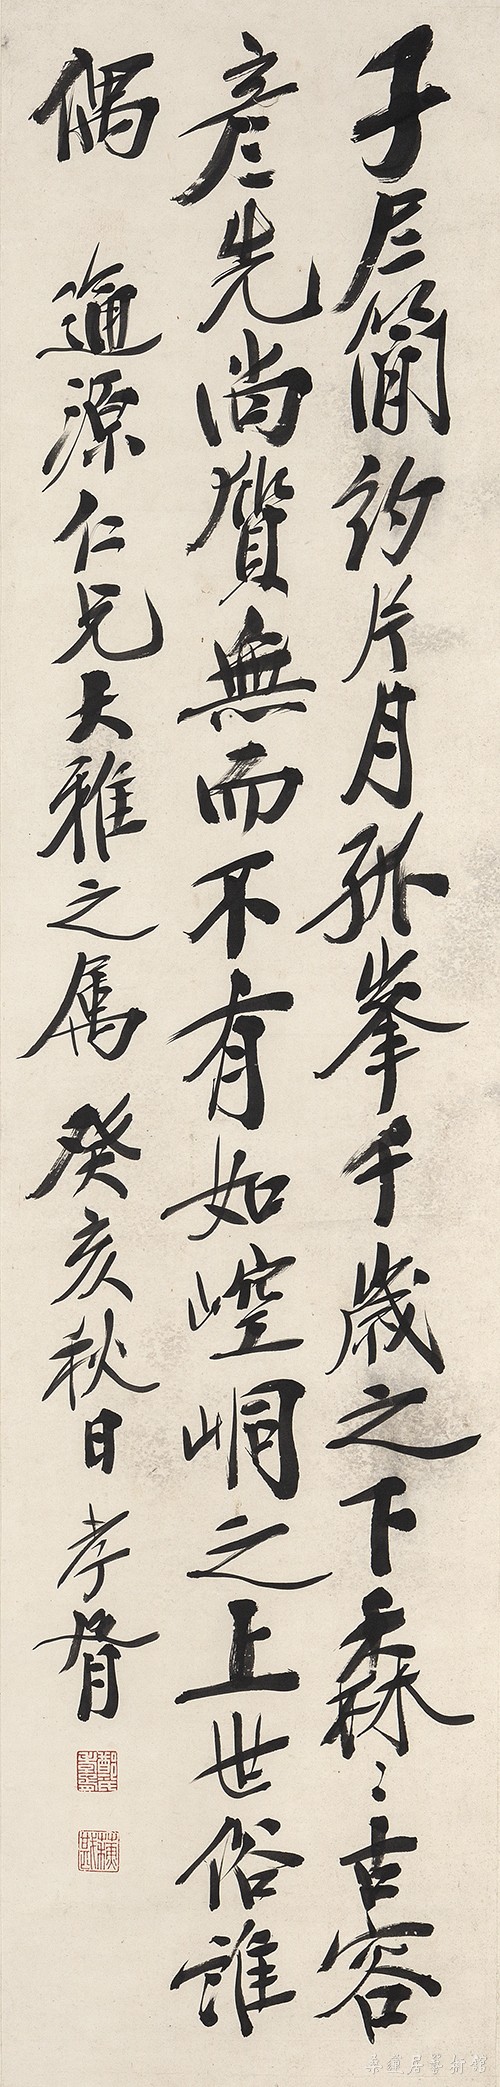 子尼簡約片月孤峯千歲之下森〻古容
彥先尚質無而不有如崆峒之上世俗誰
偶 逌源仁兄大雅之属 癸亥秋日 孝胥